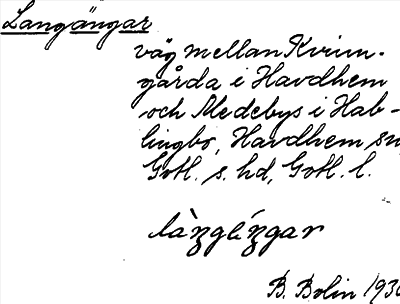 Langängar
väg mellan Kvinn-
gårda i Havdhem
och Medebys i Hab-
lingbo, Havdhem sn,
Gotl. s. hd, Gotl. l.
B. Bolin 193